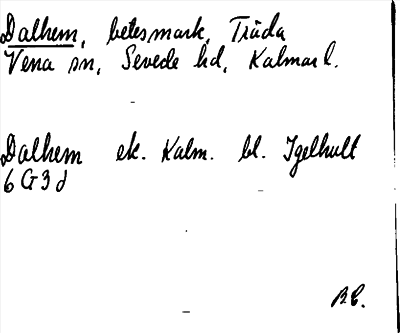 Dalhem, betesmark, Träda
Vena sn, Sevede hd, Kalmar l.
Dalhem ek. Kalm. bl. Igelhult
6G3d